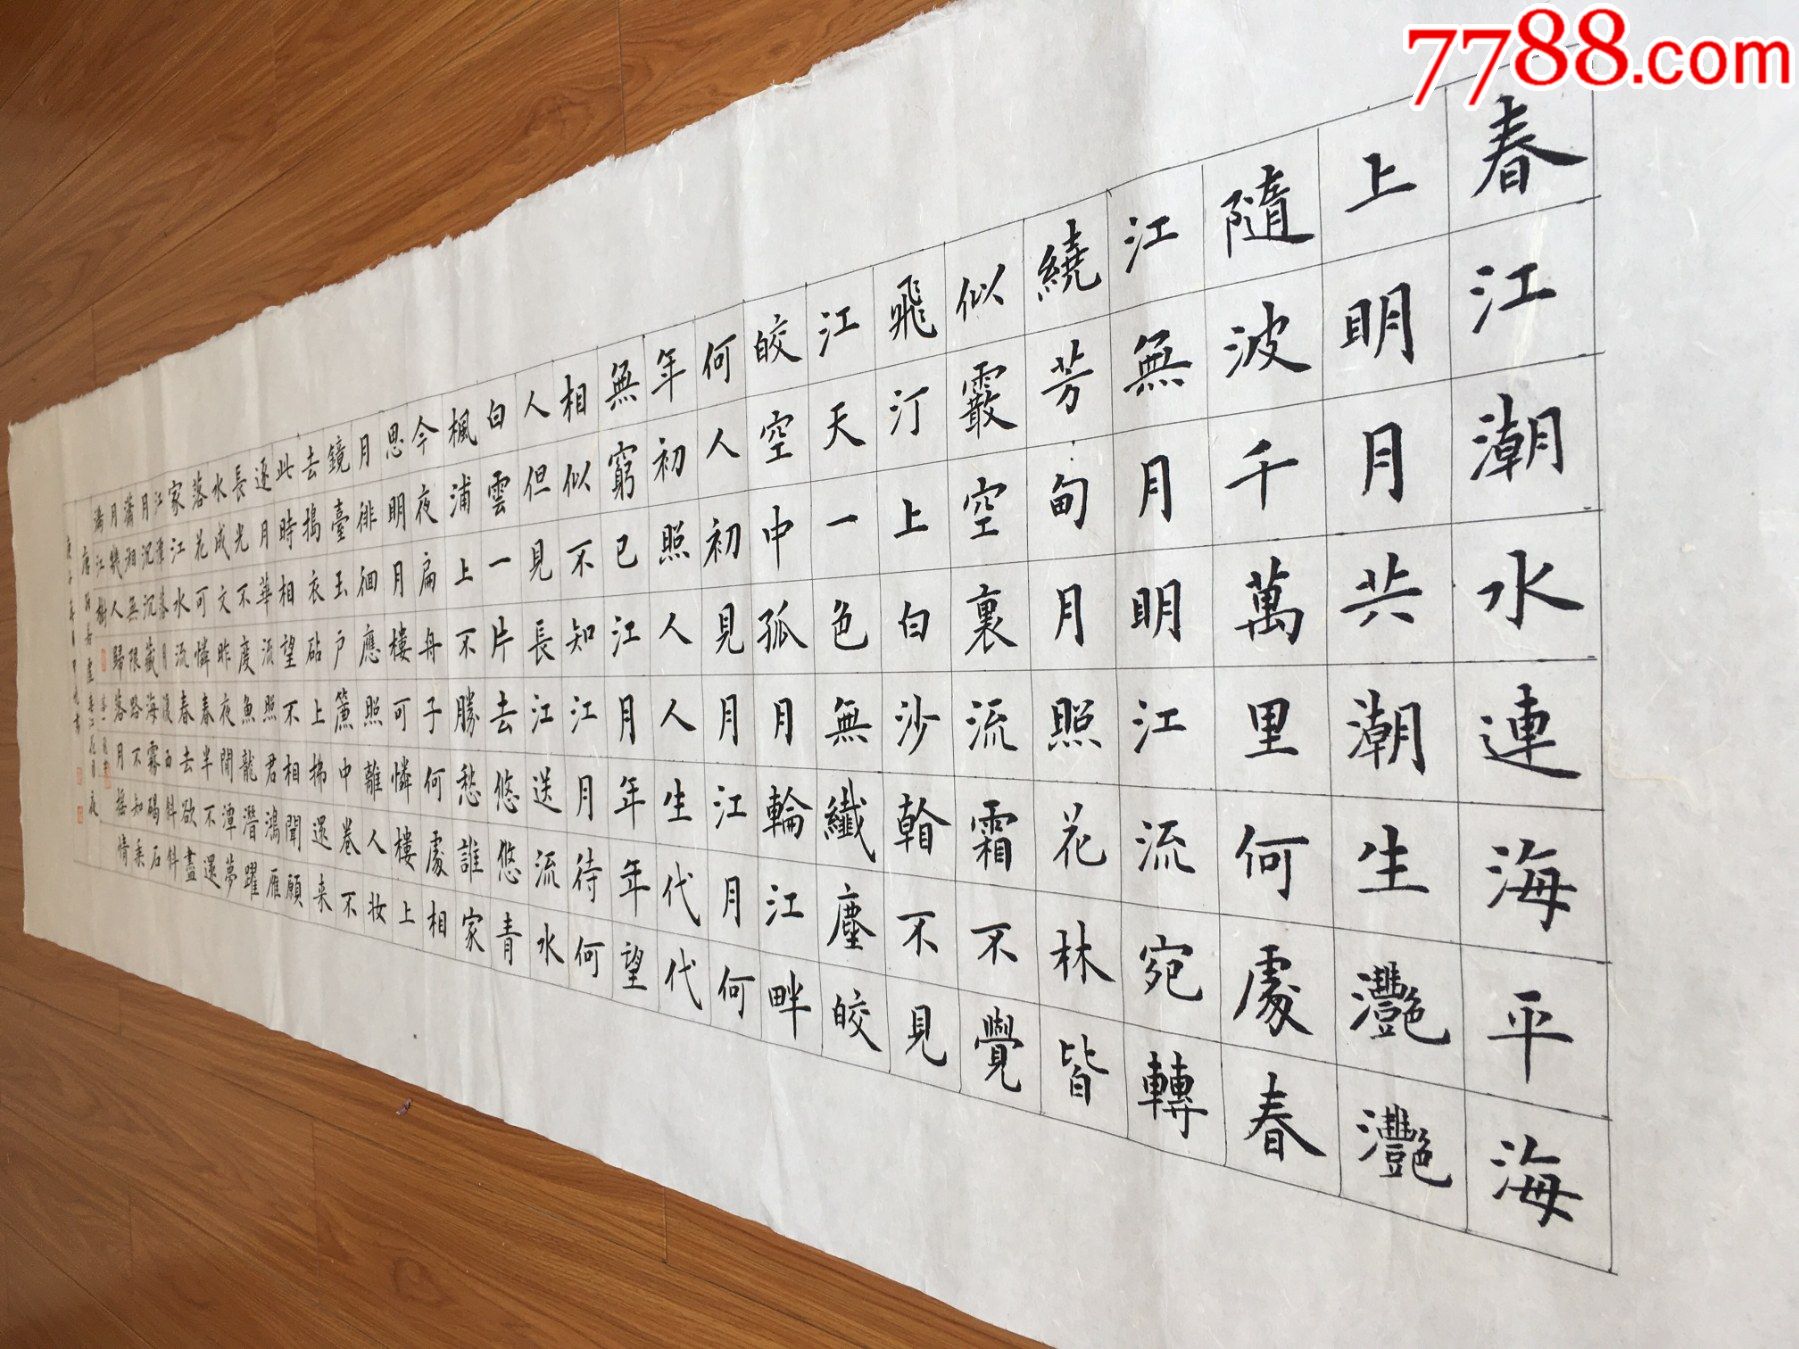 7788.com
春江潮水連海平海
上明月共潮生灩灩
隨波千萬里何處春
江無月明江流宛轉
繞芳甸月照花林皆
似霰空裏流霜不覺
飛汀上白沙看不見
江天一色無纖塵皎
皎空中孤月輪江畔
何人初見月江月何
年初照人人生代代
無窮已江月年年望
相似不知江月待何
人但見長江送流水
白雲一片去悠悠青
楓浦上不勝愁誰家
今夜扁舟子何處相
思明月樓可憐樓上
月徘徊應照離人妝
鏡臺玉戶簾中卷不
去搗衣砧上拂還来
此時相望不相聞願
逐月華流照君鴻雁
長光不度魚龍潛躍
水成文昨夜閒潭夢
落花可憐春半不還
家江水流春去欲盡
江潭落月復西斜斜
月沉沉藏海霧碣石
瀟湘無限路不知乘
月幾人歸落月搖情
滿江樹
唐張若虛春江花月夜